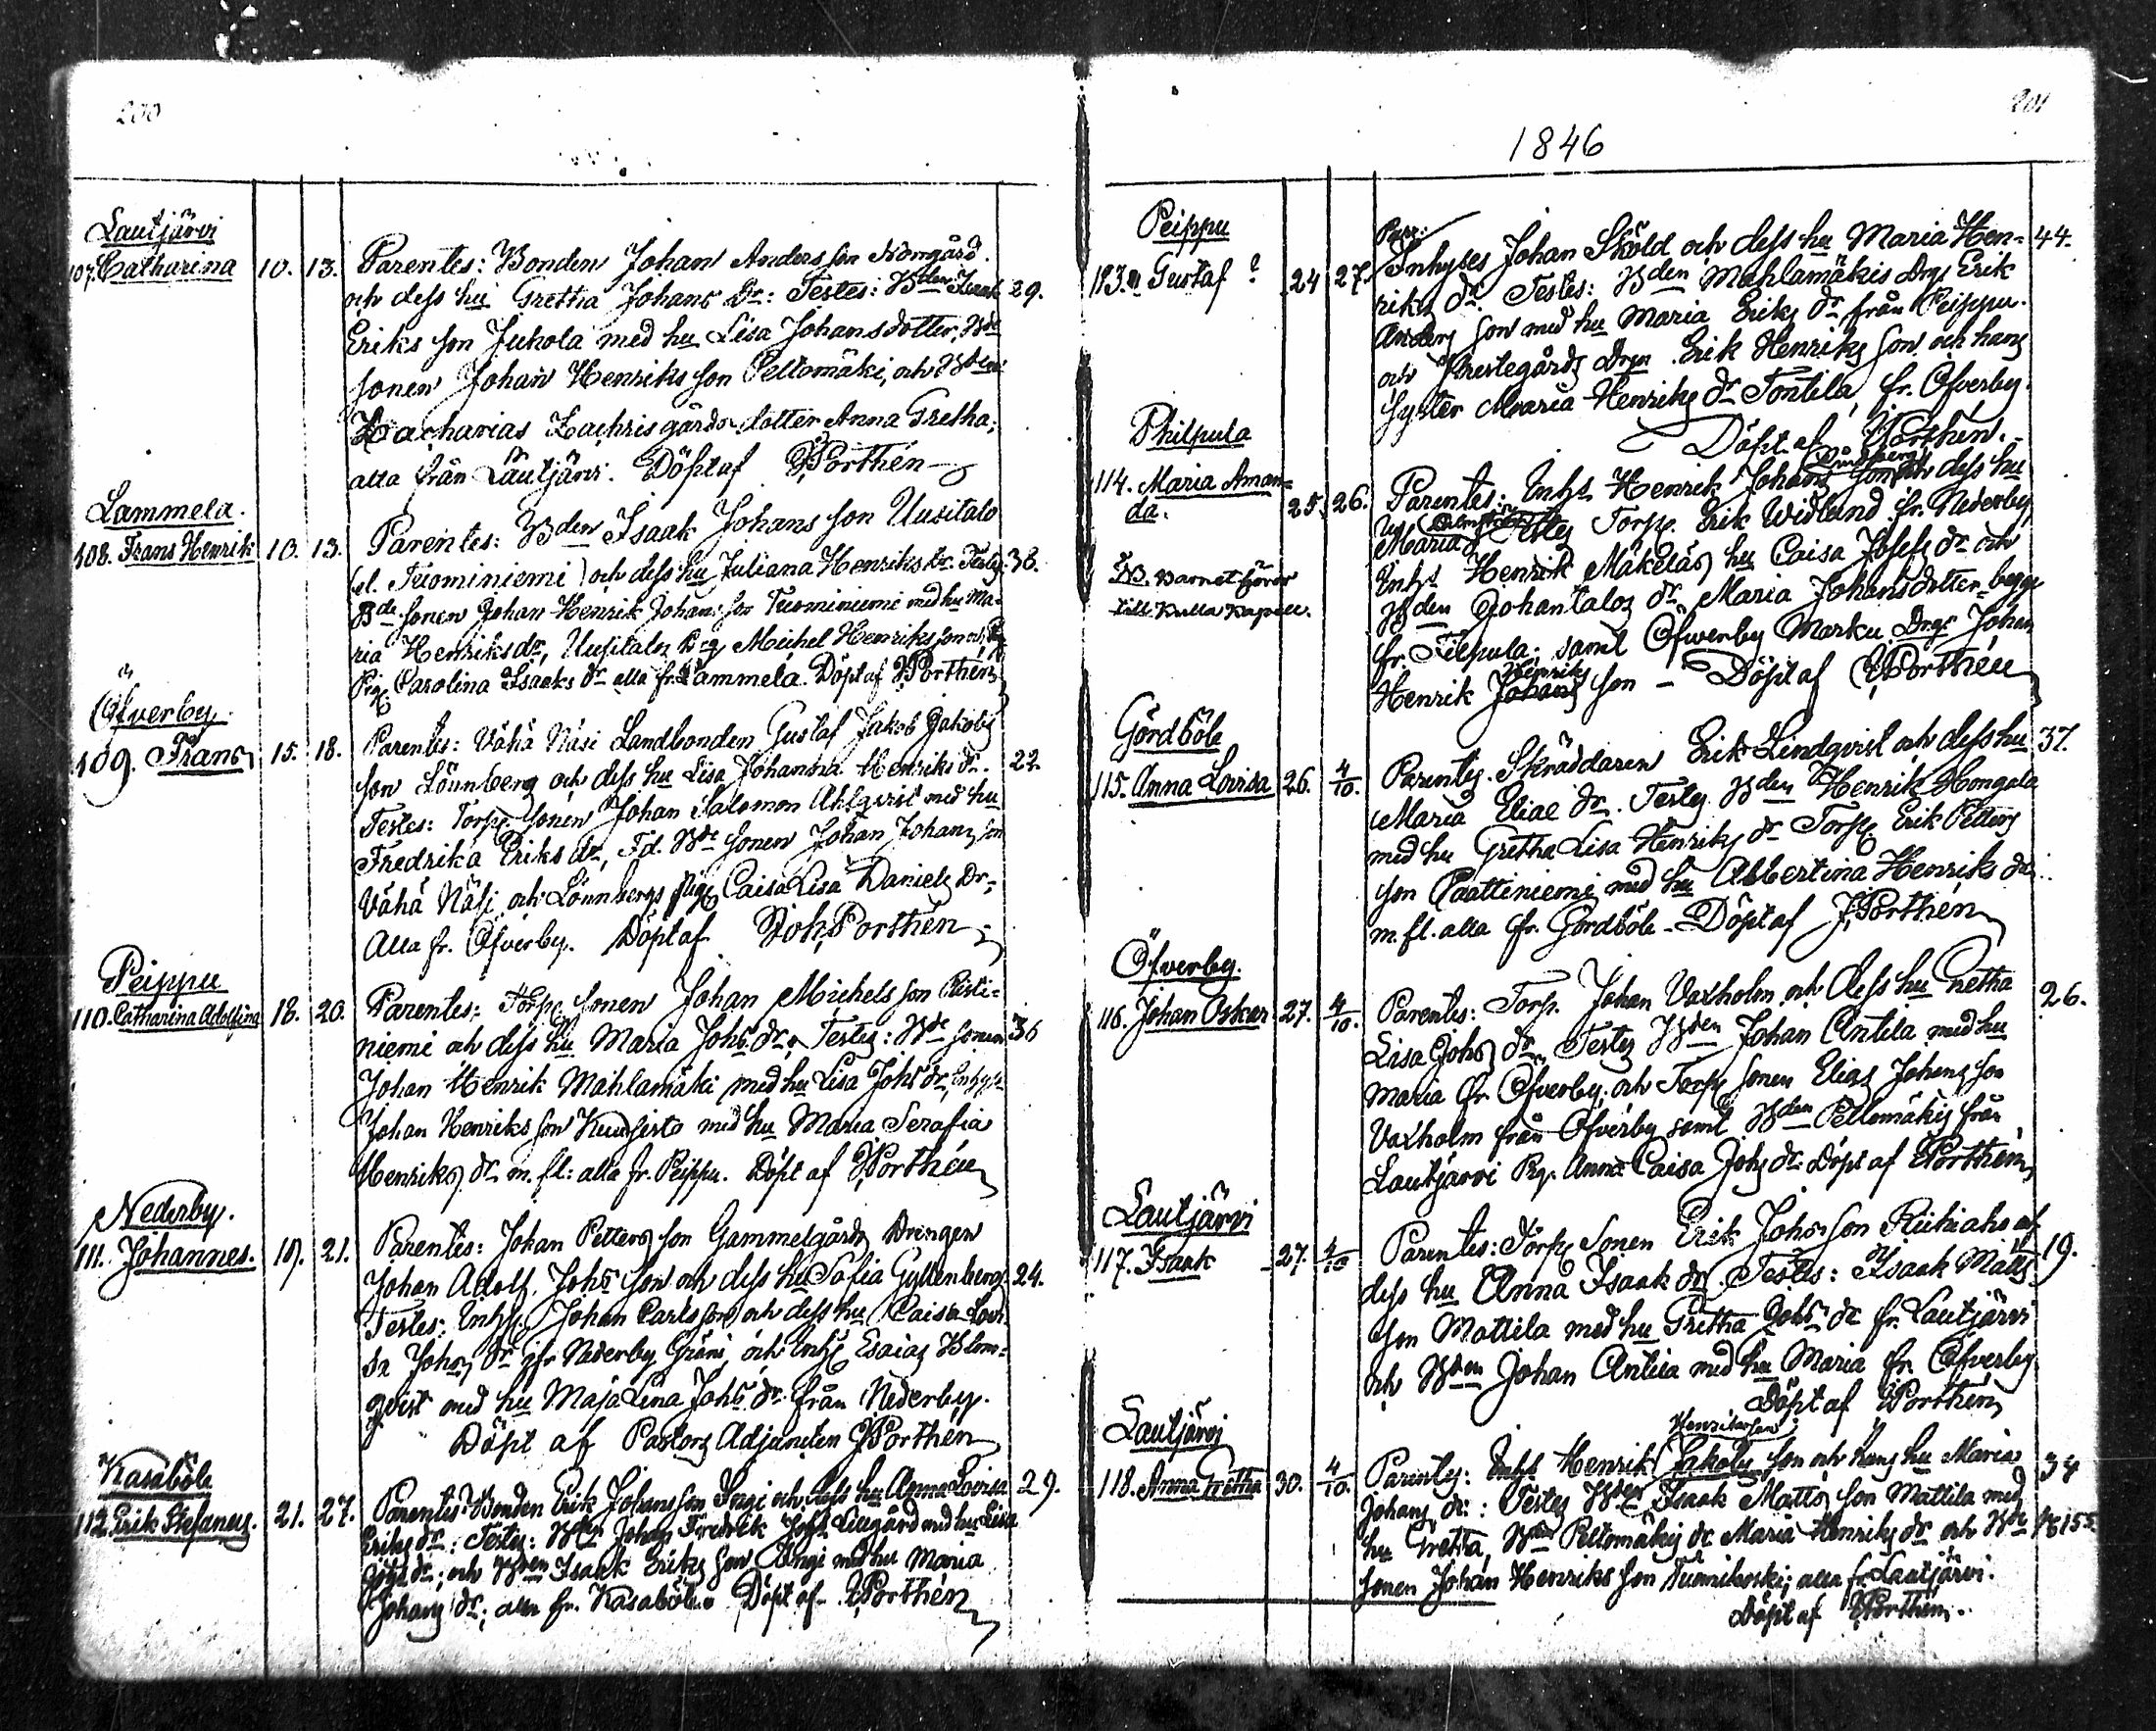 200
Lautjärvi
107. Catharina 10. 13. Parentes: Bonden Johan Anders son Norrgård
och dess hu Gretha Johans Dr: Testes: Bden Isaak 29.
Eriks son Juhola med hu Lisa Johansdotter, Bde
sonen Johan Henriks son Peltomäki, och Bdens
Zacharias Zachrisgårds dotter Anna Gretha;
alla från Lautjärvi. Döpt af JPorthén
Lammela.
108. Frans Henrik 10. 13. Parentes: Bden Isaak Johans son Uusitalo
(el. Tuominiemi) och dess hu Juliana Henriks dr. Testes 38.
Bde sonen Johan Henrik Johans son Tuominiemi med hu Ma-
ria Henriks dr, Uusitalos Drg Michel Henriks son och
Pig. Carolina Isaaks dr alla fr. Lammela. Döpt af JPorthén
Öfverby.
109. Frans 15. 18. Parentes: Vähä Näsi Landbonden Gustaf Jakob Jakobs
son Lönnberg och dess hu Lisa Johanna Henriks dr. 22
Testes: Torp. sonen Johan Salomon Ahlqvist med hu
Fredrika Eriks dr, Fd. Bde sonen Johan Johans son
Vähä Näsi och Lönnbergs pig. Caisa Lisa Daniels Dr;
Alla fr. Öfverby. Döpt af Joh. Porthén
Peippu
110. Catharina Adolfina 18. 20. Parentes: Torp. sonen Johan Michels son Risti-
niemi och dess hu Maria Johs dr; Testes: Bde sonen 36
Johan Henrik Mahlamäki med hu Lisa Johs dr, Inhys
Johan Henriks son Kuusisto med hu Maria Serafia
Henriks dr m. fl: alla fr. Peippu. Döpt af JPorthén
Nederby.
111. Johannes. 19. 21. Parentes: Johan Petters son Gammelgårds Drengen
Johan Adolf Johs son och dess hu Sofia Gyllenberg. 24.
Testes: Inhys. Johan Carls son och dess hu Caisa Lovi-
sa Johs dr fr Nederby och Inhs Esaias Blom-
qvist med hu Maja Lina Johs dr från Nederby.
Döpt af Pastors Adjuncten JPorthén
Kasaböle
112. Erik Stefanus. 21. 27. Parentes Bonden Erik Johans son Ingi och dess hu Anna Lovisa 29.
Eriks dr: Testes: Bden Johan Fredrik Johs Lillgård med hu Lisa
Johs dr; och Bden Isaak Eriks son Ingi med hu Maria
Johans dr; alla fr. Kasaböle. Döpt af JPorthén
201
1846
Peippu
113. Gustaf 24 27. Parr:
Inhyses Johan Sköld och dess hu Maria Hen- 44.
riks dr. Testes: Bden Mahlamäkis Drg Erik
Anders son med hu Maria Eriks dr från Peippu.
och Prestegårds Drgn Erik Henriks son och hans
syster Maria Henriks dr Tontila, fr. Öfverby.
Döpt af JPorthén.
Philpula
114. Maria Aman-
da. 25. 26. Parentes: Inhs Henrik Johans son och dess hu
Maria Testes Torp. Erik Widlund fr. Nederby,
NB. Barnet hörer
till Kulla Kapell.
Inhs Henrik Mäkeläs hu Caisa Josefs dr och
Bden Johantalos dr Maria Johansdotter begge
fr. Filpula; samt Öfverby Marku Drgs Johan
Henriks
Henrik Johans son - Döpt af JPorthén
Gårdböle
115. Anna Lovisa 26. 4/10. Parentes. Skräddaren Erik Lindqvist och dess hu 37.
Maria Eliae dr. Testes Bden Henrik Hongala
med hu Gretha Lisa Henriks dr Torp. Erik Petters
son Paattiniemi med hu Albertina Henriks dr
m. fl. alla fr. Gårdböle - Döpt af JPorthén
Öfverby.
116. Johan Oskar 27. 4/10. Parentes: Torp. Johan Vaxholm och dess hu Gretha 26.
Lisa Johs dr Testes Bden Johan Antila med hu
Maria fr. Öfverby, och Torp. sonen Elias Johans son
Vaxholm från Öfverby samt Bden Peltomäkis från
Lautjärvi Pig. Anna Caisa Johs dr. Döpt af JPorthén
Lautjärvi
117. Isaak 27. 4/10 Parentes: Torp. Sonen Erik Johs son och
dess hu Anna Isaaks dr. Testes: Isaak Matts 19.
son Mattila med hu Gretha Johs dr fr. Lautjärvi
och Bden Johan Antila med hu Maria fr. Öfverby
Döpt af JPorthén
Lautjärvi
Henriksson
118. Anna Gretha 30. 4/10. Parentes: Inhs Henrik Jakobs son och hans hu Maria 34
Johans dr: Testes Bden Isaak Matts son Mattila med
hu Gretha, Bden Peltomäkis dr Maria Henriks dr och Bde 155.
sonen Johan Henriks son Tuomikoski; alla fr. Lautjärvi.
Döpt af JPorthén.